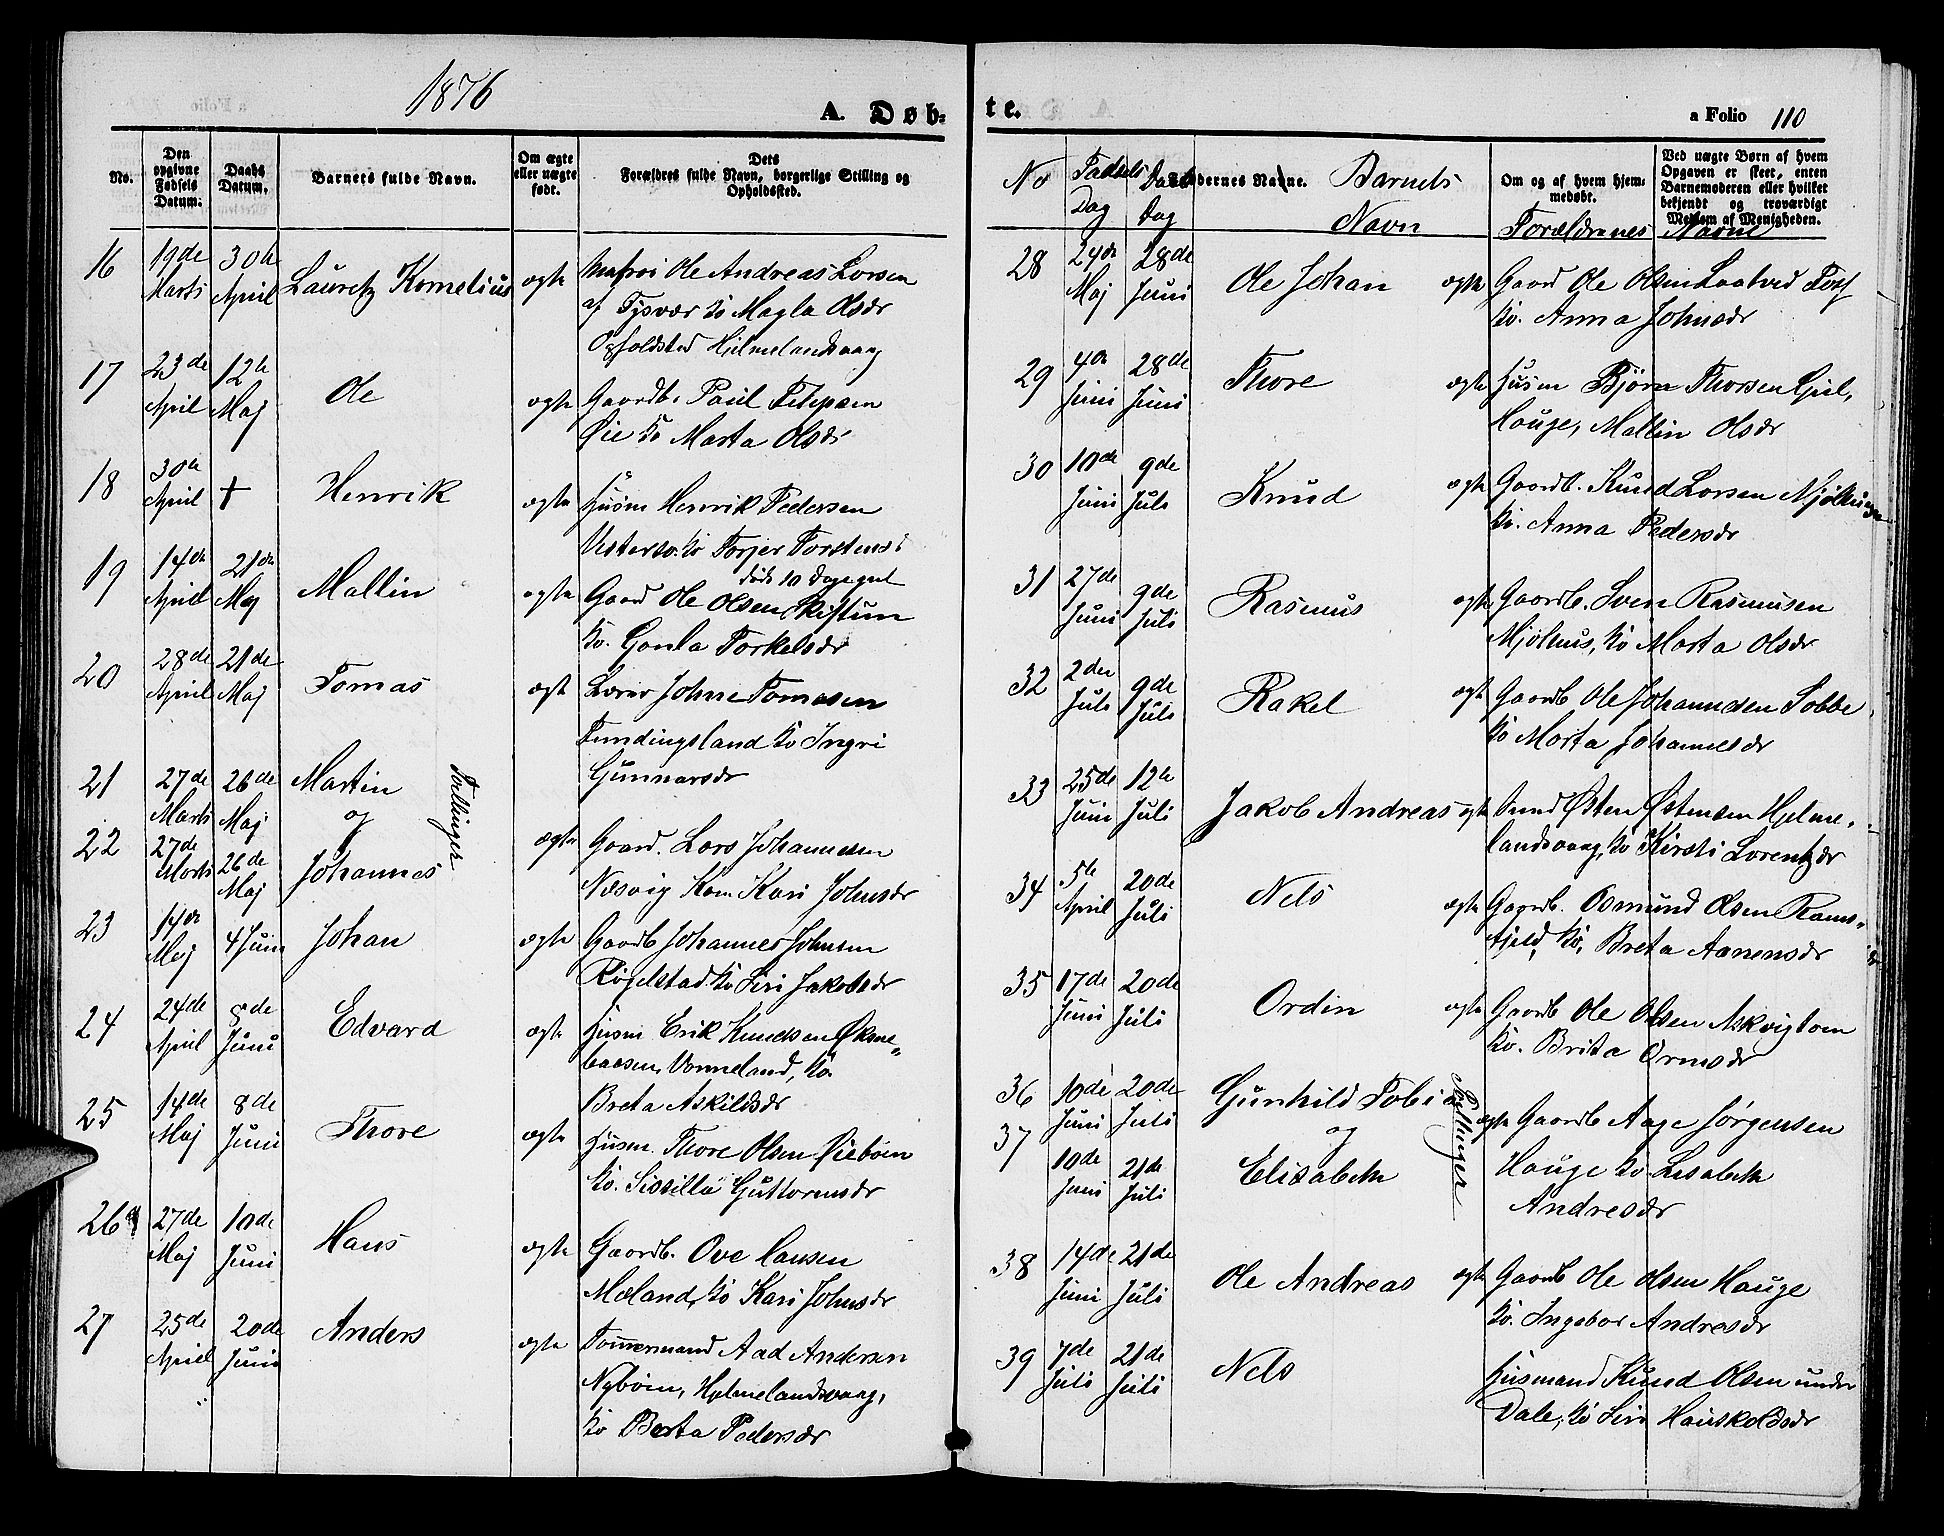 1876
A. Døb-
No.
Den opgivne Fødsels Datum.
Daabs Datum.
Barnets fulde Navn.
Om ægte eller uægte født.
Dets Forældres fulde Navn, borgerlige Stilling og Opholdssted.
16 19de Marts 30te April Lauretz Kornelius ægte Ole Andreas Larsen
af Tysvær Ko Magla Olsdr
Opholdsted Hjelmelandsvaag
17 23de April 12te Maj Ole ægte Gaardb. Paul
Øie Ko Marta Olsdr
18 30te April + Henrik ægte Husm Henrik Pedersen
Ko Torjer
døde 10 Dage gml
19 14de April 21de Maj Mallin ægte Gaard Ole Olsen Skiftun
Ko. Gonla Torkelsdr
20 28de April 21de Maj Tomas ægte Lærer Johne Tomasen
Fundingsland Ko Ingri
Gunnarsdr
21 27de Marts 26de Maj Martin
og Tvillinger
22 27de Marts 26de Maj Johannes ægte Gaard. Lars Johannessen
Næsvig Kone Kari Johnsdr
23 14de Maj 4 Juni Johan ægte Gaardb Johannes Johnsen
Røgelstad Ko Siri Jakobsdr
24 24de April 8de Juni Edvard ægte Husm Erik Knudsen Øksne-
baasen, Vormeland, Ko.
Breta Askildsdr
25 14de Maj 8de Juni Thore ægte Husm. Thore Olsen Øiebøen
Ko. Sissilla Guttormsdr
26 27de Maj 10de Juni Hans ægte Gaardb. Ove Hansen
Mæland, Ko Kari Johnsdr
27 25de April 20de Juni Anders ægte Tømmermand Aad Andersen
Nybøen, Hjelmelandsvaag,
Ko Berta Pedersdr
te.
a Folio 110
No Fødsels Dag Daabs Dag
Faddernes Navne. Barnets Navn
Om og af hvem hjemmedøbt.
Ved uægte Børn af hvem Opgaven er skeet, enten Barnemoderen eller hvilket bekjendt og troværdigt Medlem af Menigheden.
Forældrenes Navne
28 24de Maj 28de Juni Ole Johan ægte Gaard Ole Olsen Laatved
Ko. Anna Johnsdr
29 4de Juni 28de Juni Thore ægte Husm Bjørn Thorsen
Hauge, Mallin Olsdr
30 10de Juni 9de Juli Knud ægte Gaardb. Knud Larsen
Ko. Anna Pedersdr
31 27de Juni 9de Juli Rasmus ægte Gaardb. Sven Rasmusen
Mjølhus, Ko Marta Olsdr
32 2den Juli 9de Juli Rakel ægte Gaardb Ole Johannesen Tobbe
Ko Marta Johannesdr
33 25de Juni 12te Juli Jakob Andreas ægte Østen Østensen Hjelme-
landsvaag, Ko Kirsti Lorentzdr
34 5te April 20de Juli Nels ægte Gaardb. Osmund Olsen Rams-
fjeld, Ko, Breta Aanensdr
35 17de Juni 20de Juli Ordin ægte Gaardb Ole Olsen Askvigtom
Ko. Brita Ormsdr
36 10de Juni 20de Juli Gunhild Tobia
og Tvillinger ægte Gaardb Aage Jørgensen
37 10de Juni 21de Juli Elisabeth Hauge Ko Lisabeth
Andresdr
38 14de Juni 21de Juli Ole Andreas ægte Gaardb Ole Olsen Hauge
Ko. Ingebor Andresdr
39 7de Juli 21de Juli Nels Husmand Knud Olsen under
Dale, Ko Siri Hauskoldsdr